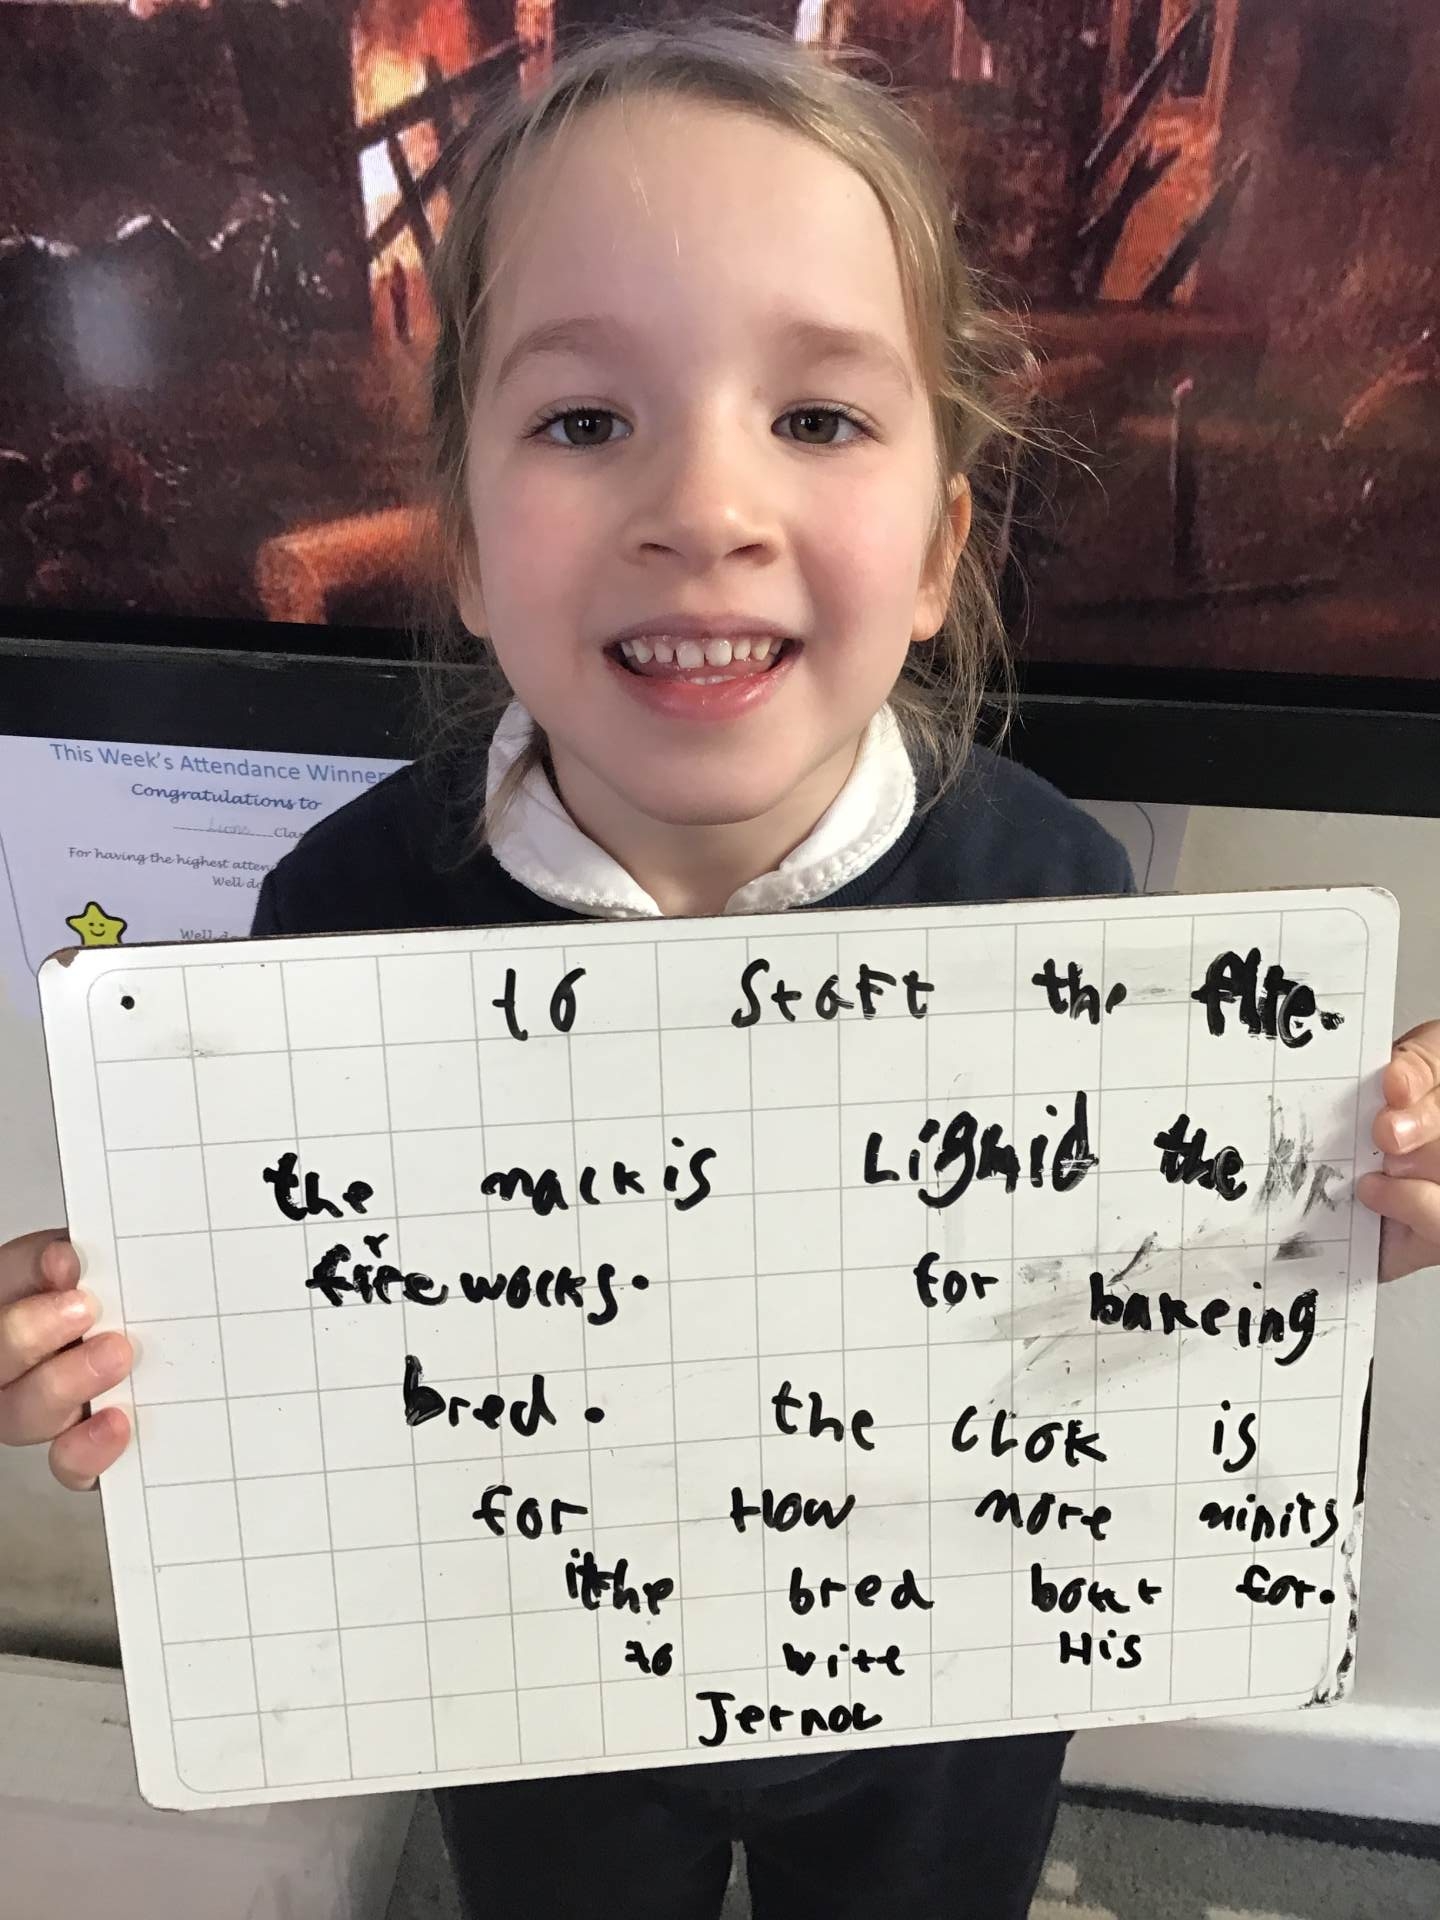 This Week's Attendance Winner
Congratulations to
Lions Clas
For having the highest atten
Well do
Well do
to Start the fire.
the mackis Liquid the
fire works. for bakeing
bred. the CLOK is
for How more minits
the bred for.
to write His
Jernol